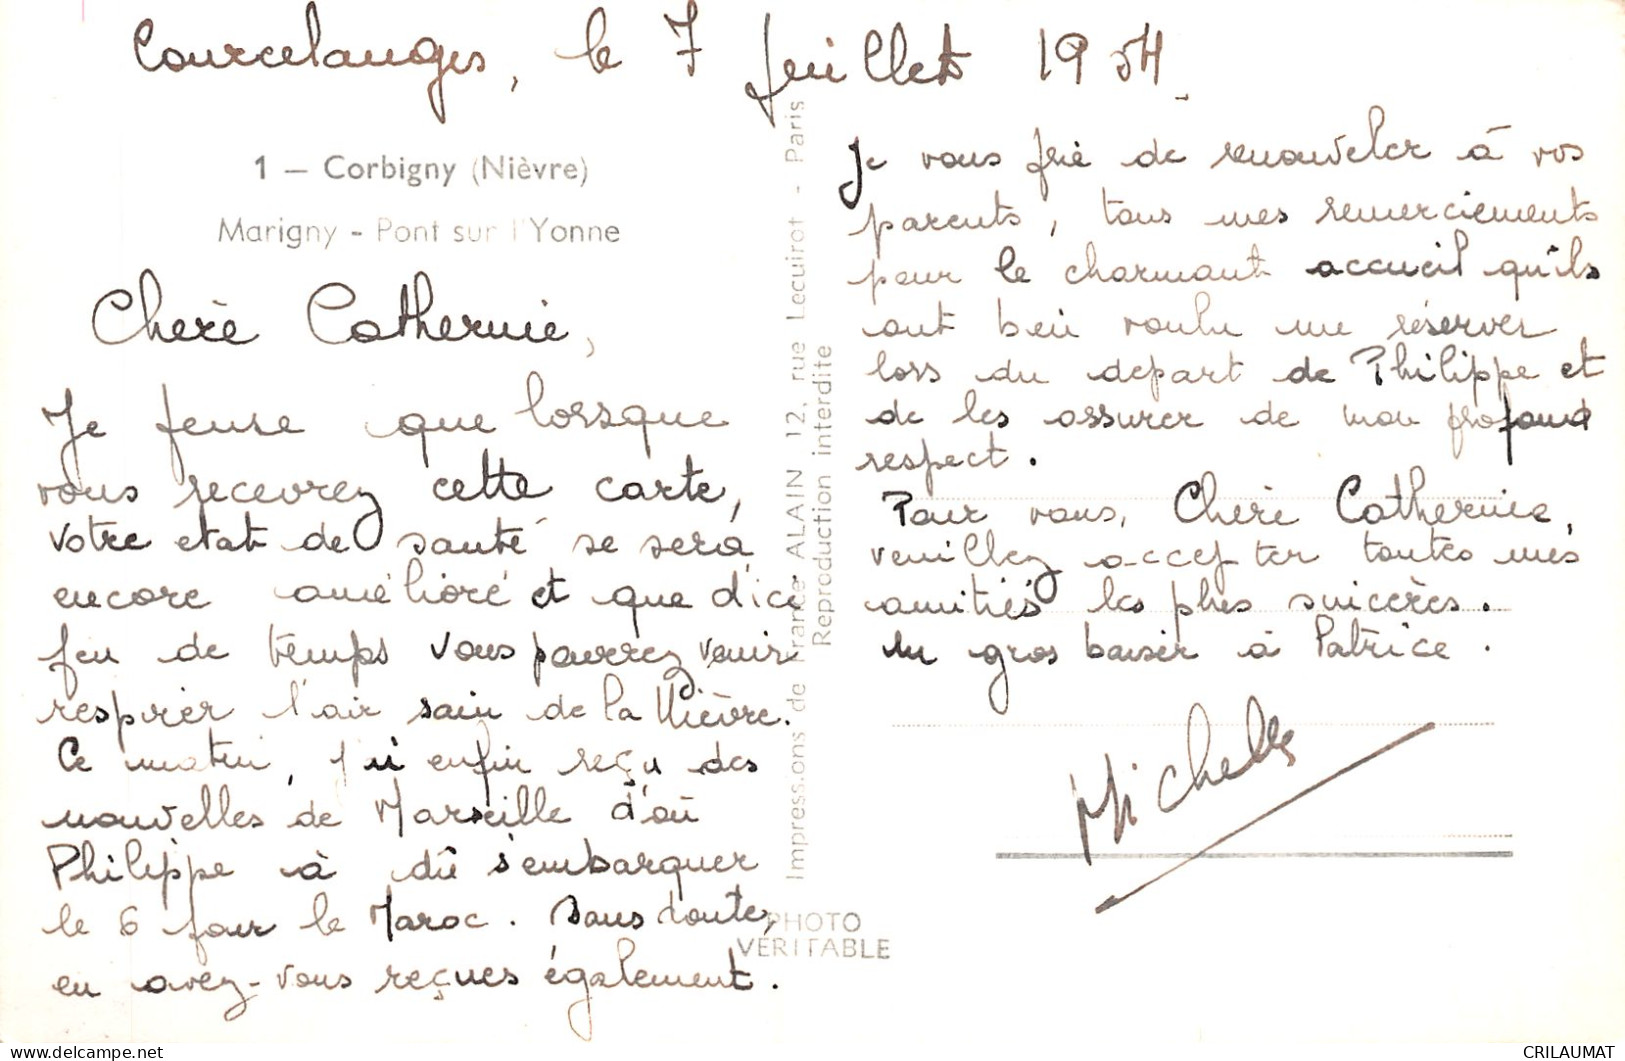 Courcelanges, le 7 Juillet 1954.
1 — Corbigny (Nièvre)
Marigny - Pont sur l'Yonne
Chère Catherine,
Je pense que lorsque
vous recevrez cette carte,
votre etat de santé se sera
encore amélioré et que d'ici
peu de temps vous pourrez venir
respirer l'air sain de la Nièvre.
Ce matin, j'ai enfin reçu des
nouvelles de Marseille d'où
Philippe à dû s'embarquer
le 6 pour le Maroc. Sans doutes,
en avez-vous reçues également.
Impressions de France ALAIN 12, rue Lecuirot - Paris
Reproduction interdite
PHOTO
VERITABLE
Je vous prie de renouveler à vos
parents, tous mes remerciements
pour le charmant accueil qu'ils
ont bien voulu me réserver
lors du depart de Philippe et
de les assurer de mon profond
respect.
Pour vous, Chère Catherine,
veuillez accepter toutes mes
amitiés les plus sincères.
un gros baiser à Patrice.
Michelle
CRILAUMAT